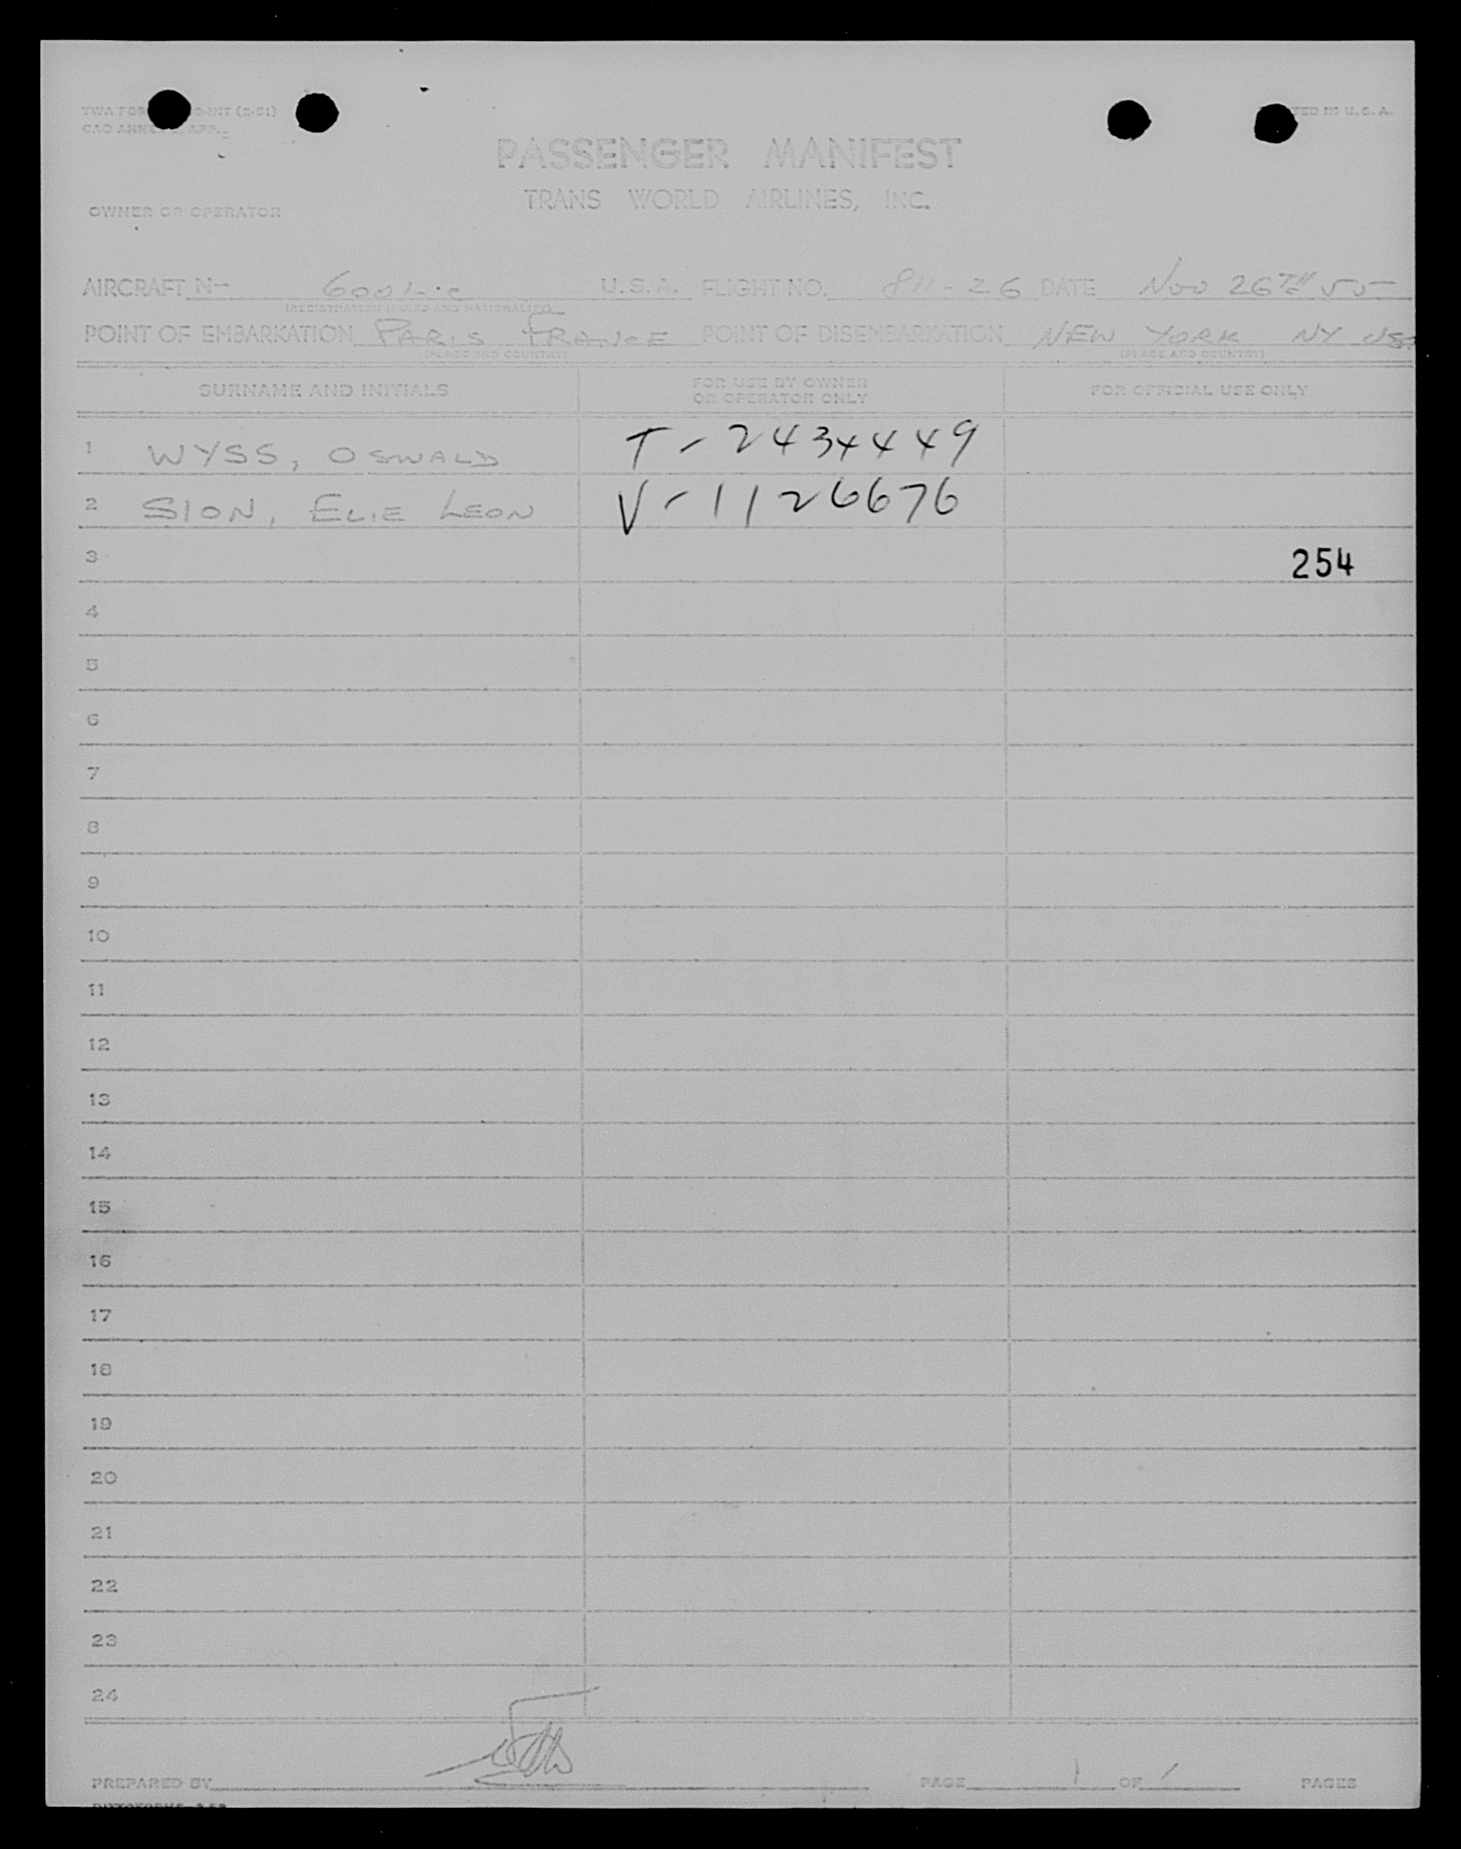 TWA FOR
(2-51)
CAO ANNEX
TED IN U.S.A.
PASSENGER MANIFEST
TRANS WORLD AIRLINES, INC.
OWNER OR OPERATOR
AIRCRAFT N- 6001-C U.S.A. FLIGHT NO. 811-26 DATE Nov 26TH 55
POINT OF EMBARKATION PARIS FRANCE POINT OF DISEMBARKATION NEW YORK NY USA
(PLACE AND COUNTRY) (PLACE AND COUNTRY)
SURNAME AND INITIALS FOR USE BY OWNER OR OPERATOR ONLY FOR OFFICIAL USE ONLY
1 WYSS, OSWALD T-2434449
2 SION, ELIE LEON V-1126676
3 254
4
5
6
7
8
9
10
11
12
13
14
15
16
17
18
19
20
21
22
23
24
PREPARED BY PAGE 1 OF 1 PAGES